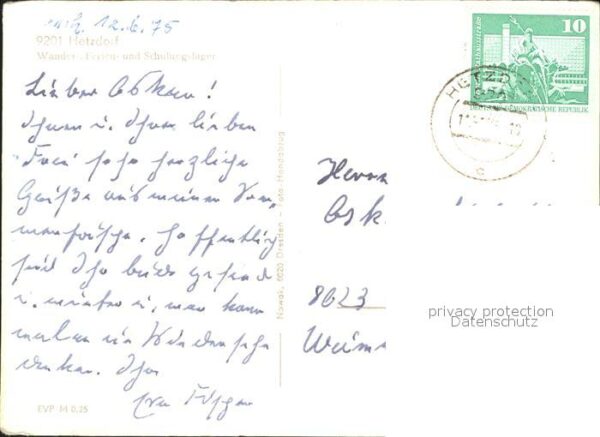 12.6.75
9201 Hetzdorf
Wander-, Ferien- und Schulungslager
Lieber Oskar!
Ihnen u. Ihrer lieben
Frau sehr herzliche
Grüße aus meiner Som-
merfrische. Hoffentlich
sind Sie beide gesund
u. munter u. man kann
mal an ein Wiedersehn
denken. Ihr
EVP M 0,25
Nowak, 8020 Dresden - Foto-Handabzug
10
DEUTSCHE DEMOKRATISCHE REPUBLIK
HETZD
Herrn
Osk
8023
privacy protection
Datenschutz